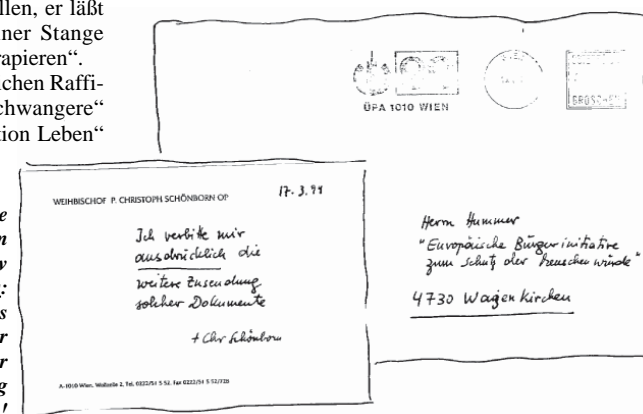 llen, er läßt
iner Stange
rapieren“.
ichen Raffi-
chwangere“
tion Leben“
e
n
v
:
s
r
r
g
!
ÜPA 1010 WIEN
WIEN
GROSCHEN
WEIHBISCHOF P. CHRISTOPH SCHÖNBORN OP
17. 3. 94
Ich verbitte mir
ausdrücklich die
weitere Zusendung
solcher Dokumente
+ Chr Schönborn
A-1010 Wien, Wollzeile 2, Tel. 0222/51 5 52, Fax 0222/51 5 52/728
Herrn Hummer
"Europäische Bürgerinitiative
zum Schutz der Menschenwürde"
4730 Waizenkirchen